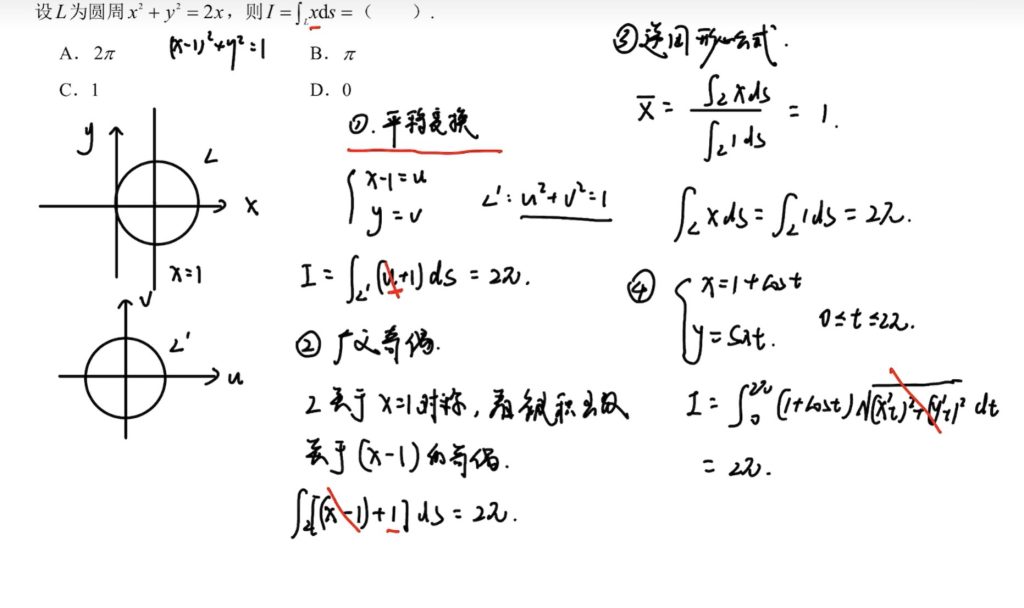 设L为圆周x²+y²=2x，则I=∫_L xds=（　　）.
A. 2π
B. π
C. 1
D. 0
(x-1)²+y²=1
y
L
x
x=1
v
L'
u
①.平移变换
{x-1=u
y=v
L':u²+v²=1
I=∫_L'(u+1)ds=2π.
② 广义奇偶.
L关于x=1对称，看被积函数
关于(x-1)的奇偶.
∫_L[(x-1)+1]ds=2π.
③逆用形心公式.
x̄=∫_L xds/∫_L 1ds=1.
∫_L xds=∫_L 1ds=2π.
④ {x=1+cost
y=sint.
0≤t≤2π.
I=∫₀^2π(1+cost)√((x't)²+(y't)²)dt
=2π.